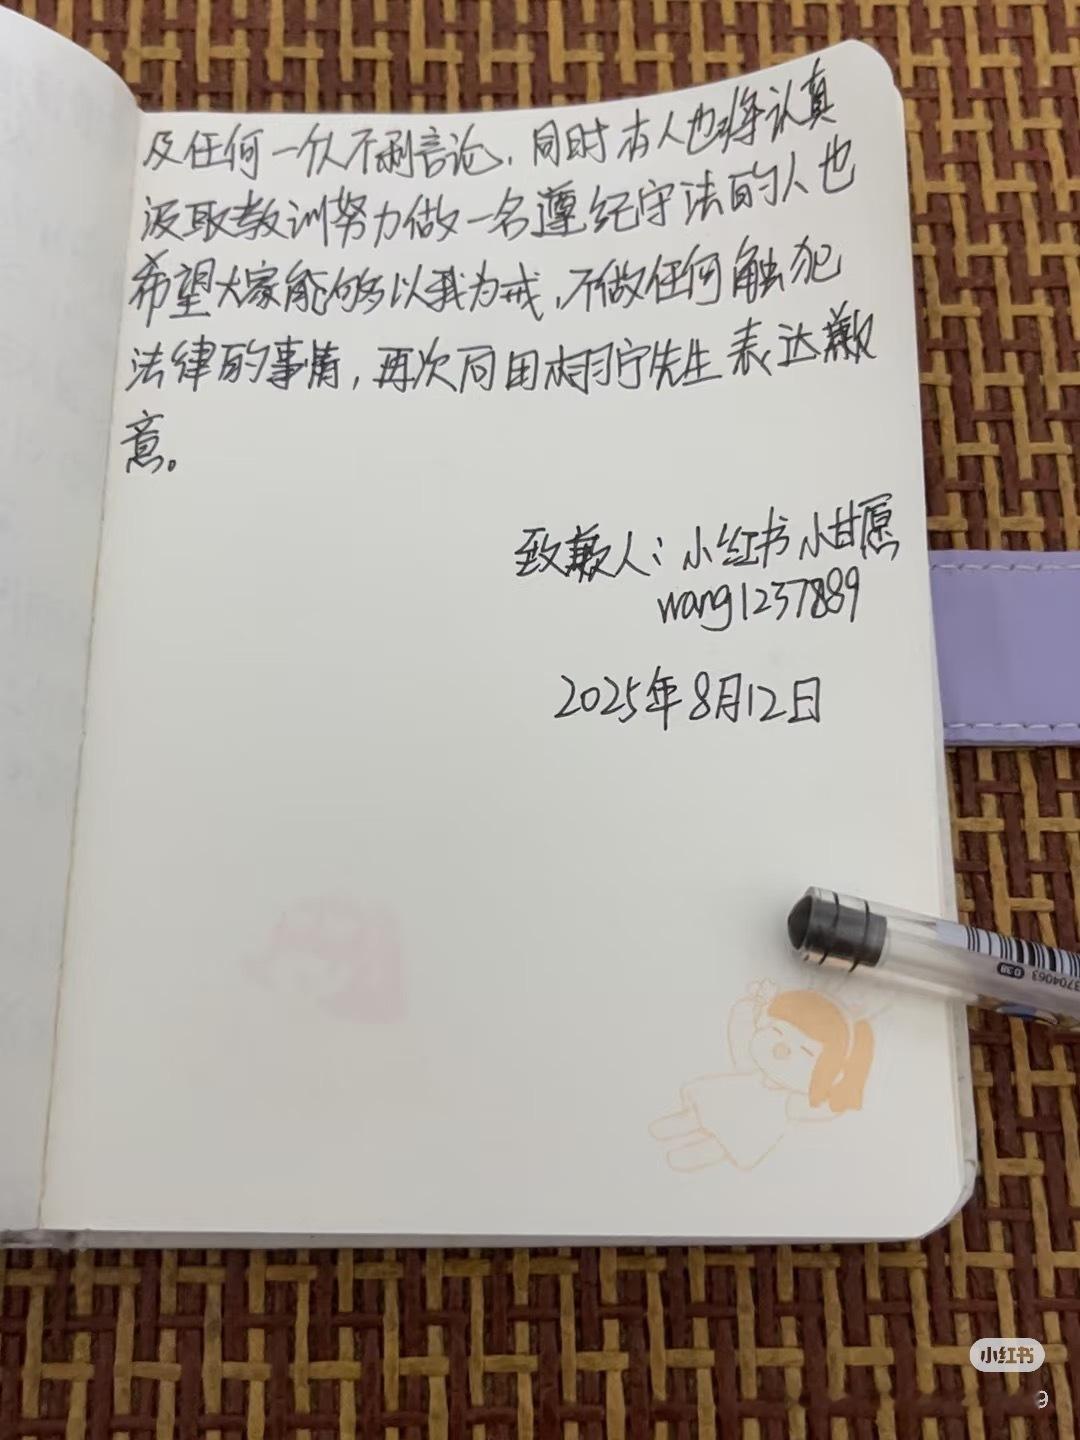 及任何一人不利言论，同时本人也将认真
汲取教训努力做一名遵纪守法的人也
希望大家能够以我为戒，不做任何触犯
法律的事情，再次向田栩宁先生表达歉
意。
致歉人：小红书 小甘愿
wang1237889
2025年8月12日
0.38
3704063
小红书
9